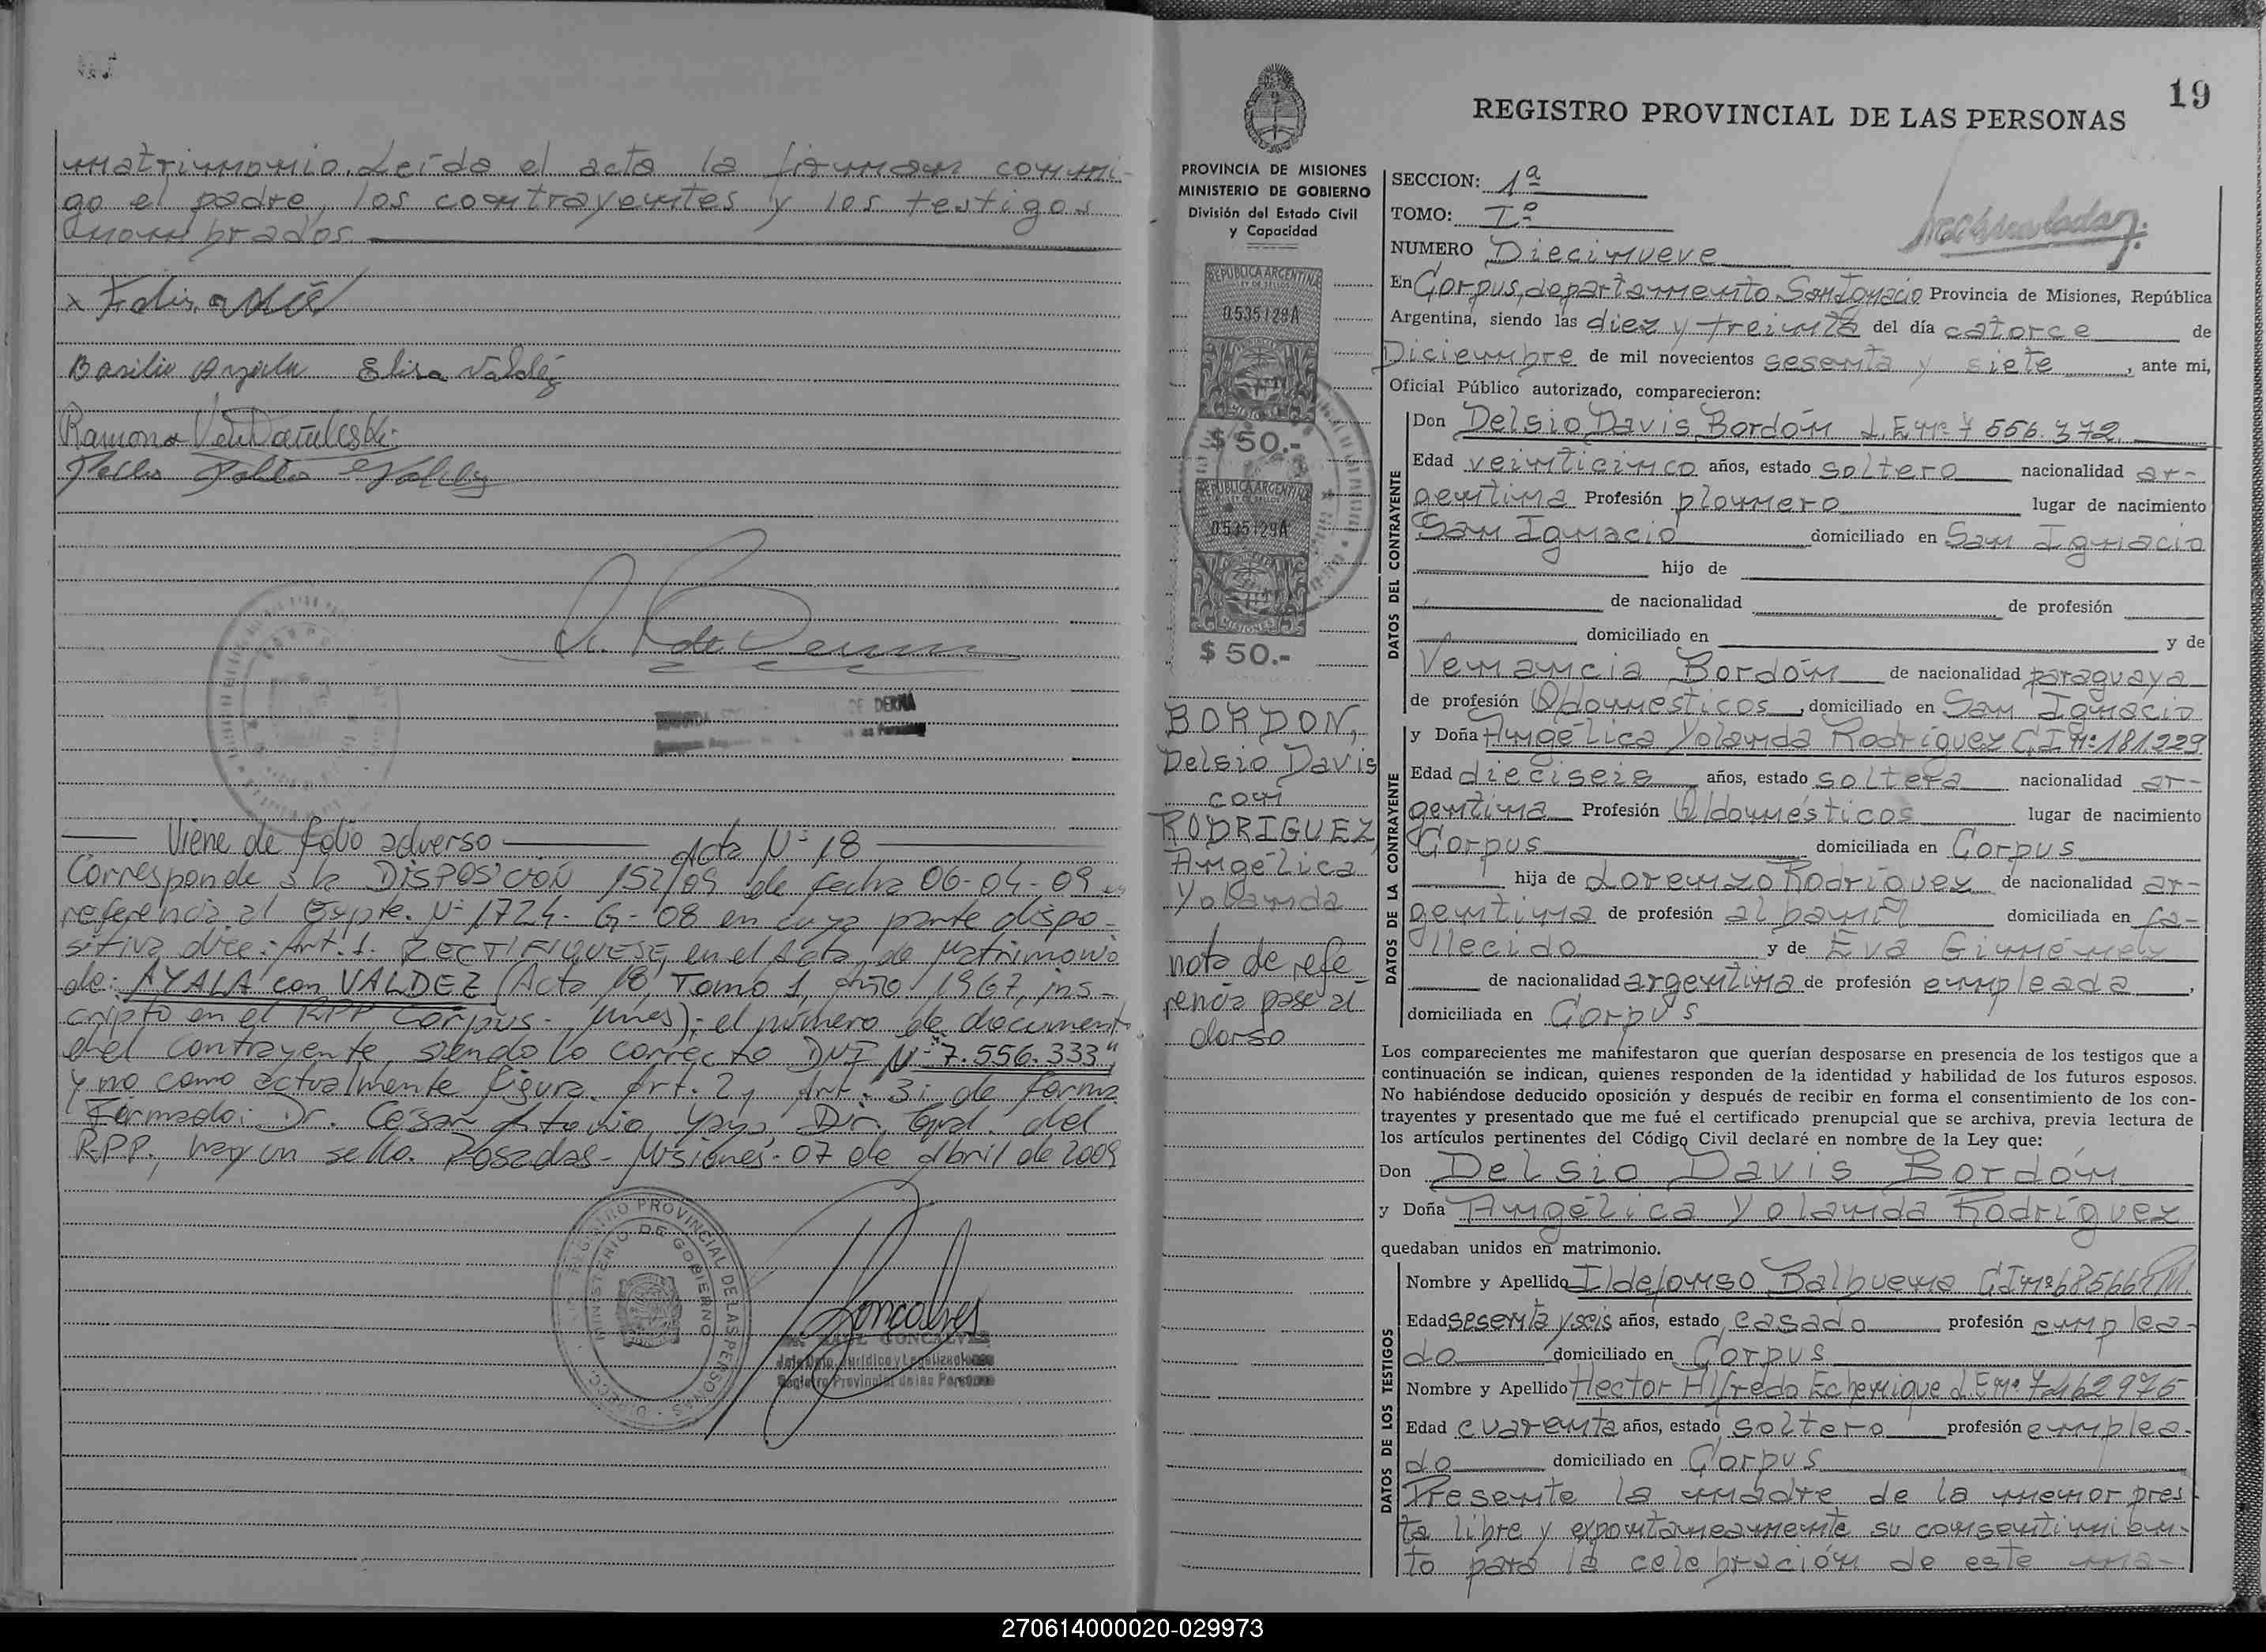 matrimonio. Leída el acta la firman conmi-
go el padre, los contrayentes y los testigos
nombrados.
x
Basilio Ayala Elisa Valdéz
Ramona
DE DERNA
Viene de folio adverso Acta Nº 18
Corresponde a la DISPOSICIÓN 152/09 de fecha 06-04-09 en
referencia al Expte. Nº 1724-G-08 en cuya parte dispo-
sitiva dice: Art. 1: RECTIFIQUESE, en el Acta de Matrimonio
de: AYALA con VALDEZ (Acta 18, Tomo 1, año 1967, ins-
cripto en el RPP Corpus - Mnes): el número de documento
del contrayente, siendo lo correcto DNI Nº "7.556.333"
y no como actualmente figura. Art. 2, Art. 3: de forma
Firmado: Dr. César Antonio Dir. Gral. del
RPP., hay un sello. Posadas - Misiones - 07 de Abril de 2009
REGISTRO PROVINCIAL DE LAS PERSONAS
MINISTERIO DE GOBIERNO
Goncalves
GONCALVES
Jefe Dpto. Jurídico y Legalizaciones
Registro Provincial de las Personas
19
REGISTRO PROVINCIAL DE LAS PERSONAS
PROVINCIA DE MISIONES
MINISTERIO DE GOBIERNO
División del Estado Civil
y Capacidad
REPUBLICA ARGENTINA
0535128A
MISIONES
$ 50.-
REPUBLICA ARGENTINA
0535129A
MISIONES
$ 50.-
BORDON,
Delsio Davis
con
RODRIGUEZ
Angélica
Yolanda
nota de refe
rencia pase al
dorso
SECCION: 1ª
TOMO: Iº
NUMERO Diecinueve
En Corpus, departamento San Ignacio Provincia de Misiones, República
Argentina, siendo las diez y treinta del día catorce de
Diciembre de mil novecientos sesenta y siete, ante mi,
Oficial Público autorizado, comparecieron:
DATOS DEL CONTRAYENTE
Don Delsio Davis Bordón L.E nº 7 556.372
Edad veinticinco años, estado soltero nacionalidad ar-
gentina Profesión plomero lugar de nacimiento
San Ignacio domiciliado en San Ignacio
hijo de
de nacionalidad de profesión
domiciliado en y de
Venancia Bordón de nacionalidad paraguaya
de profesión Q/domésticos, domiciliado en San Ignacio
DATOS DE LA CONTRAYENTE
y Doña Angélica Yolanda Rodríguez C.I nº 181.229
Edad dieciseis años, estado soltera nacionalidad ar-
gentina Profesión Q/domésticos lugar de nacimiento
Corpus domiciliada en Corpus
hija de Lorenzo Rodríguez de nacionalidad ar-
gentina de profesión albañil domiciliada en fa-
llecido y de Eva Giménez
de nacionalidad argentina de profesión empleada,
domiciliada en Corpus
Los comparecientes me manifestaron que querían desposarse en presencia de los testigos que a
continuación se indican, quienes responden de la identidad y habilidad de los futuros esposos.
No habiéndose deducido oposición y después de recibir en forma el consentimiento de los con-
trayentes y presentado que me fué el certificado prenupcial que se archiva, previa lectura de
los artículos pertinentes del Código Civil declaré en nombre de la Ley que:
Don Delsio Davis Bordón
y Doña Angélica Yolanda Rodríguez
quedaban unidos en matrimonio.
DATOS DE LOS TESTIGOS
Nombre y Apellido Ildefonso Balbuena C.I nº 68566 P.M.
Edad sesenta y seis años, estado casado profesión emplea-
do domiciliado en Corpus
Nombre y Apellido Hector Alfredo Echenique L.E nº 7462976
Edad cuarenta años, estado soltero profesión emplea-
do domiciliado en Corpus
Presente la madre de la menor pres
ta libre y expontaneamente su consentimien-
to para la celebración de este ma-
270614000020-029973